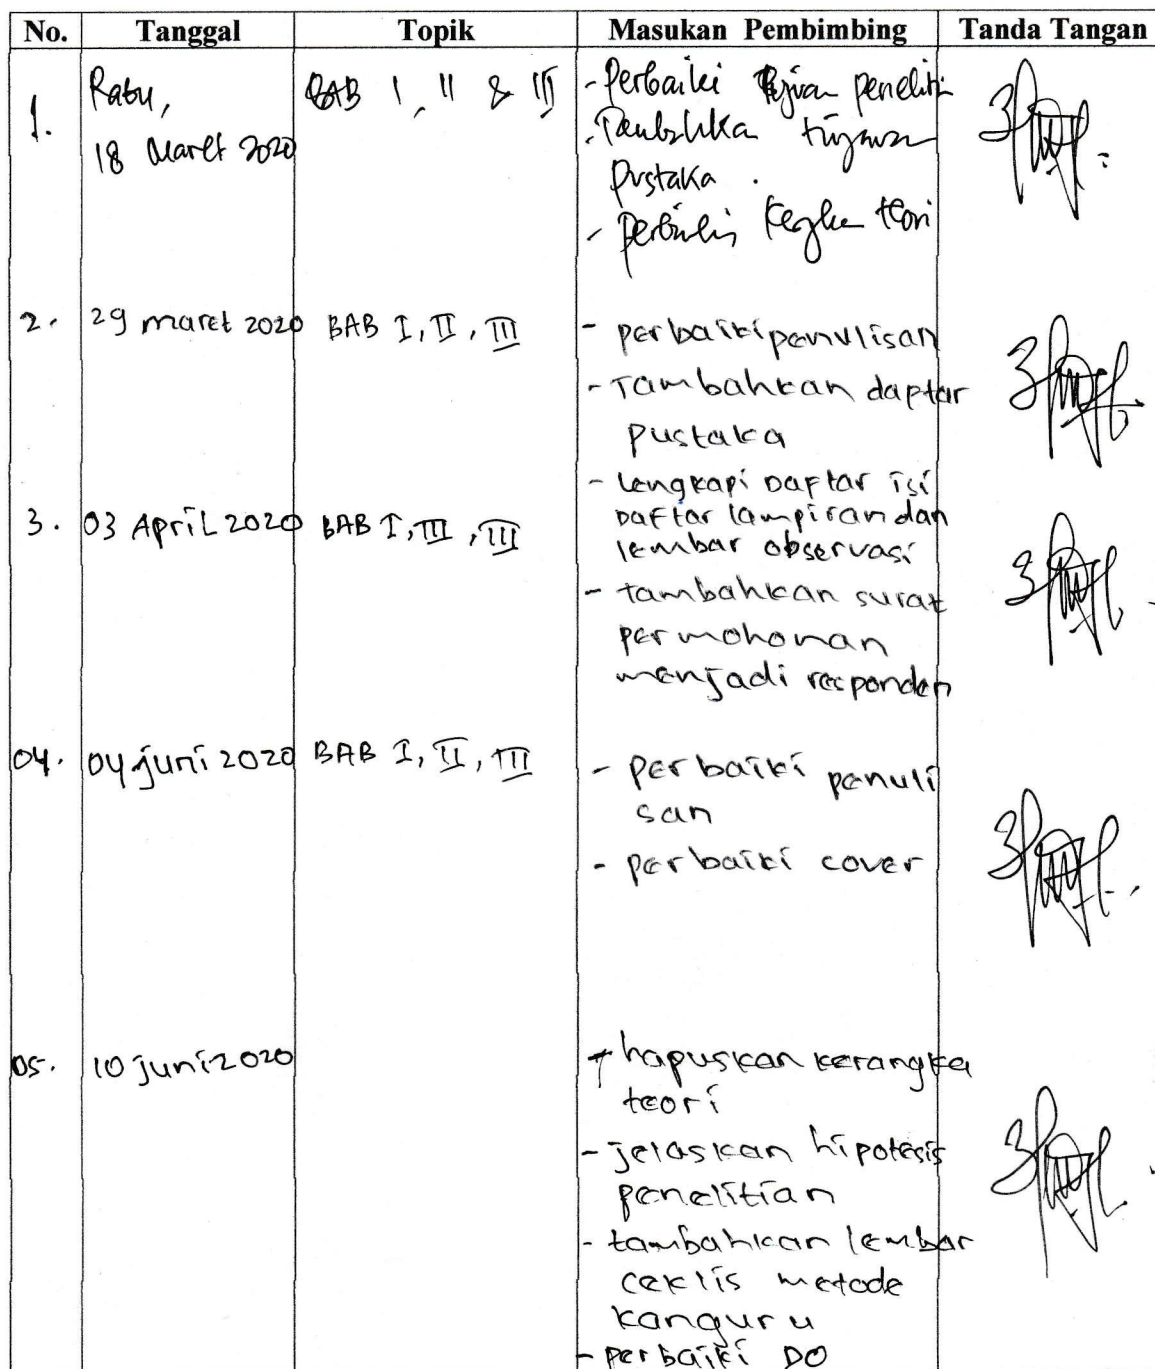 No. Tanggal Topik Masukan Pembimbing Tanda Tangan
1. Rabu, BAB I, II & III - Perbaiki penelitian
18 Maret 2020
Pustaka.
- teori
2. 29 maret 2020 BAB I, II, III - perbaiki penulisan
- Tambahkan daptar
pustaka
- Lengkapi Daftar isi
3. 03 April 2020 BAB I, III, III Daftar lampiran dan
lembar observasi
- tambahkan surat
permohonan
menjadi responden
04. 04 juni 2020 BAB I, II, III - perbaiki penuli
san
- perbaiki cover
05. 10 juni 2020 - hapuskan kerangka
teori
- jelaskan hipotesis
penelitian
- tambahkan lembar
ceklis metode
kanguru
- perbaiki DO